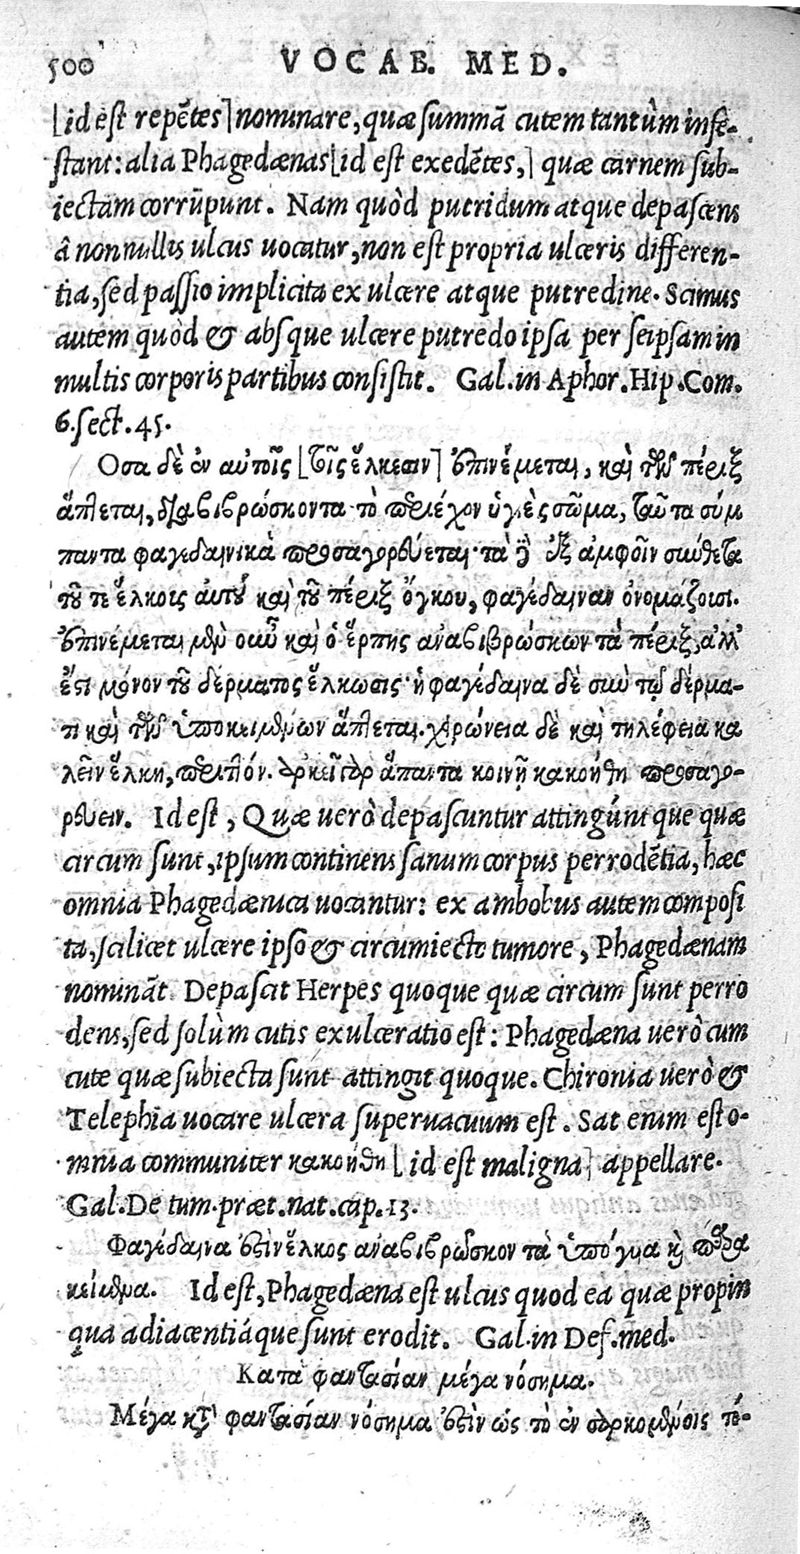 500 VOCAB. MED.
[id est repẽtes] nominare, quæ summã cutem tantùm infe-
stant: alia Phagedænas [id est exedẽtes,] quæ carnem sub-
iectam corrũpunt. Nam quòd putridum atque depascens
â nonnullis ulcus uocatur, non est propria ulceris differen-
tia, sed passio implicita ex ulcere atque putredine. Scimus
autem quòd & absque ulcere putredo ipsa per seipsam in
multis corporis partibus consistit. Gal. in Aphor. Hip. Com.
6. sect. 45.
Οσα δὲ ἐν αὐτοῖς [τοῖς ἕλκεσιν] ἐπινέμεται, καὶ τῶν πέριξ
ἅπτεται, διαβιβρώσκοντα τὸ περιέχον ὑγιὲς σῶμα, ταῦτα σύμ
παντα φαγεδαινικὰ προσαγορεύεται· τὰ δ' ἐξ ἀμφοῖν σύνθετα
τοῦ τε ἕλκοις αὐτοῦ καὶ τοῦ πέριξ ὄγκου, φαγέδαιναν ὀνομάζουσι.
ἐπινέμεται μὲν οὖν καὶ ὁ ἕρπης ἀναβιβρώσκων τὰ πέριξ, ἀλλ'
ἔστι μόνον τοῦ δέρματος ἕλκωσις· ἡ φαγέδαινα δὲ σὺν τῷ δέρμα-
τι καὶ τῶν ὑποκειμένων ἅπτεται. χειρώνεια δὲ καὶ τηλέφεια κα
λεῖν ἕλκη, περιττόν. ἀρκεῖ γὰρ ἅπαντα κοινῇ κακοήθη προσαγο-
ρεύειν. Id est, Quæ uerò depascuntur attingúntque quæ
circum sunt, ipsum continens sanum corpus perrodẽtia, hæc
omnia Phagedænica uocantur: ex ambobus autem composi
ta, scilicet ulcere ipso & circumiecto tumore, Phagedænam
nominãt. Depascit Herpes quoque quæ circum sunt perro
dens, sed solùm cutis exulceratio est: Phagedæna uerò cum
cute quæ subiecta sunt attingit quoque. Chironia uerò &
Telephia uocare ulcera superuacuum est. Sat enim est o-
mnia communiter κακοήθη [id est maligna] appellare.
Gal. De tum. præt. nat. cap. 13.
Φαγέδαινα ἐστὶν ἕλκος ἀναβιβρῶσκον τὰ ὑπόγυια κỳ παρα
κείμενα. Id est, Phagedæna est ulcus quod ea quæ propin
qua adiacentiáque sunt erodit. Gal. in Def. med.
Κατὰ φαντασίαν μέγα νόσημα.
Μέγα κατὰ φαντασίαν νόσημα ἐστὶν ὡς τὸ ἐν σαρκομένοις